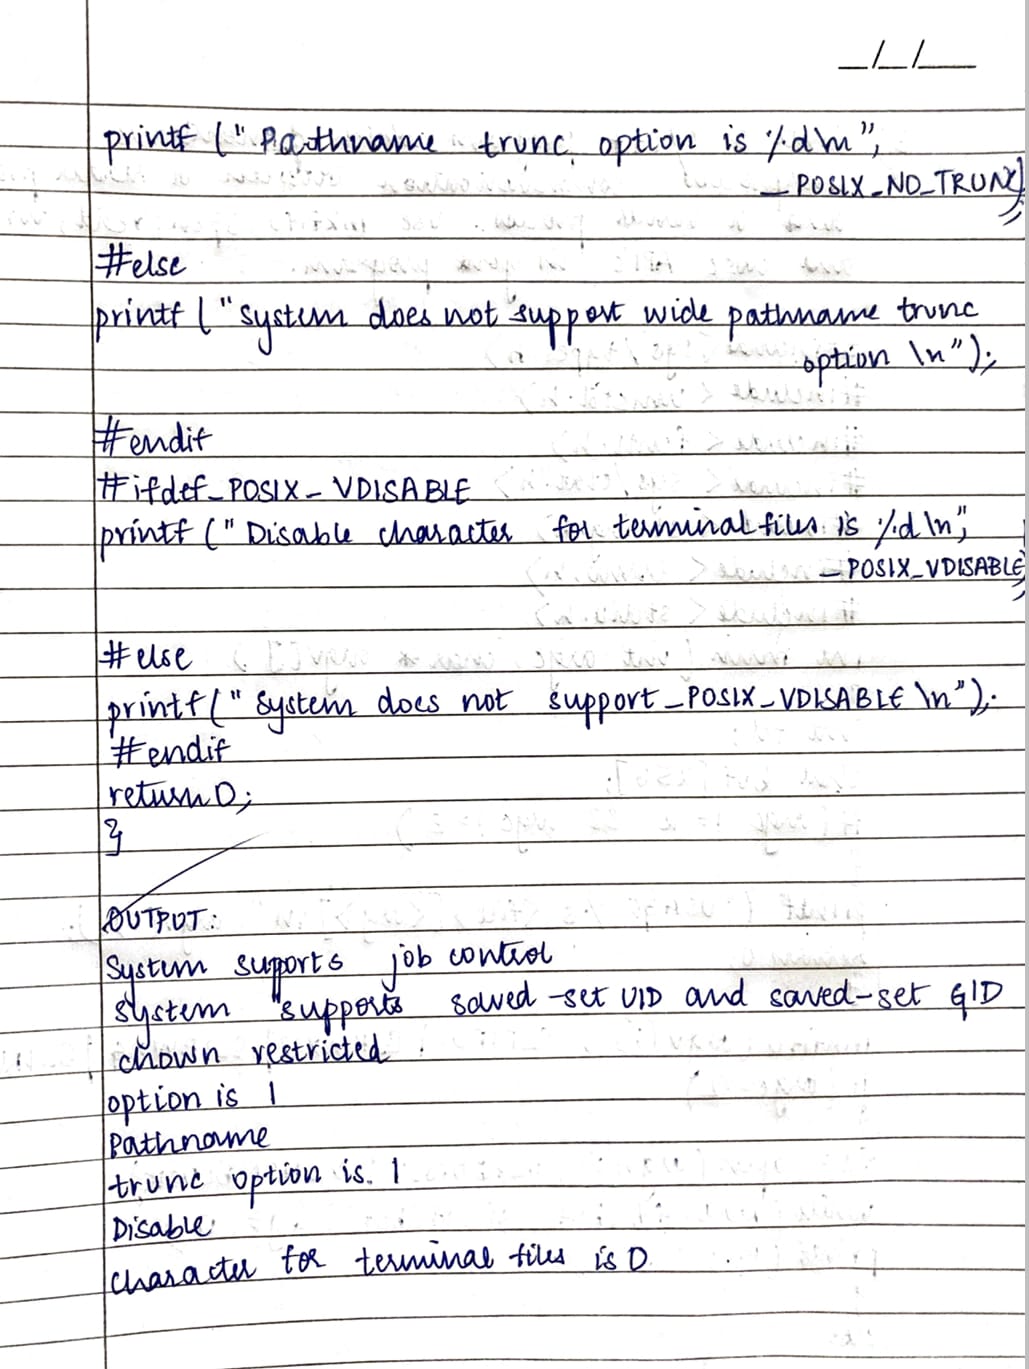 _/_/__
printf (" Pathname trunc option is %d\n",
_POSIX_NO_TRUNC)
;
#else
printf ("System does not support wide pathname trunc
option \n");
#endif
#ifdef_POSIX_VDISABLE
printf (" Disable character for terminal files is %d \n",
_POSIX_VDISABLE)
;
#else
printf(" System does not support _POSIX_VDISABLE \n");
#endif
return 0;
}
OUTPUT:
System supports job control
System supports saved-set UID and saved-set GID
chown restricted
option is 1
Pathname
trunc option is 1
Disable
character for terminal files is 0